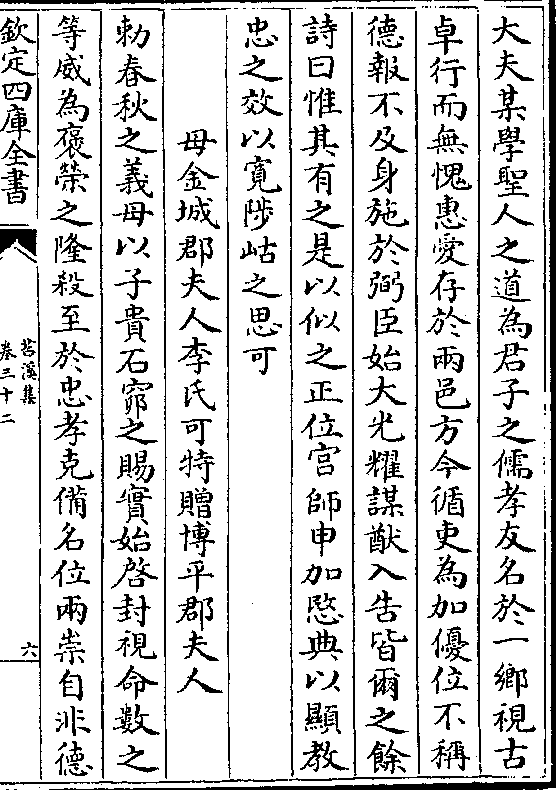 大夫某學聖人之道為君子之儒孝友名於一鄉視古
卓行而無愧惠愛存於兩邑方今循吏為加優位不稱
德報不及身施於弼臣始大光耀謀猷入告皆爾之餘
詩曰惟其有之是以似之正位宫師申加愍典以顯教
忠之效以寛陟岵之思可
母金城郡夫人李氏可特贈博平郡夫人
勅春秋之義母以子貴石窌之賜實始啓封視命數之
等威為褒榮之隆殺至於忠孝克備名位兩崇自非德
欽定四庫全書
苕溪集
卷三十二
六